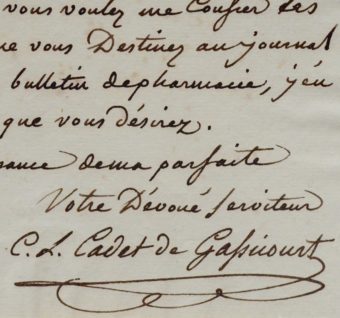 vous voulez me confier les
vous Destinez au journal
bulletin de pharmacie, j'en
que vous désirez.
de ma parfaite
Votre Dévoué serviteur
C. L. Cadet de Gassicourt